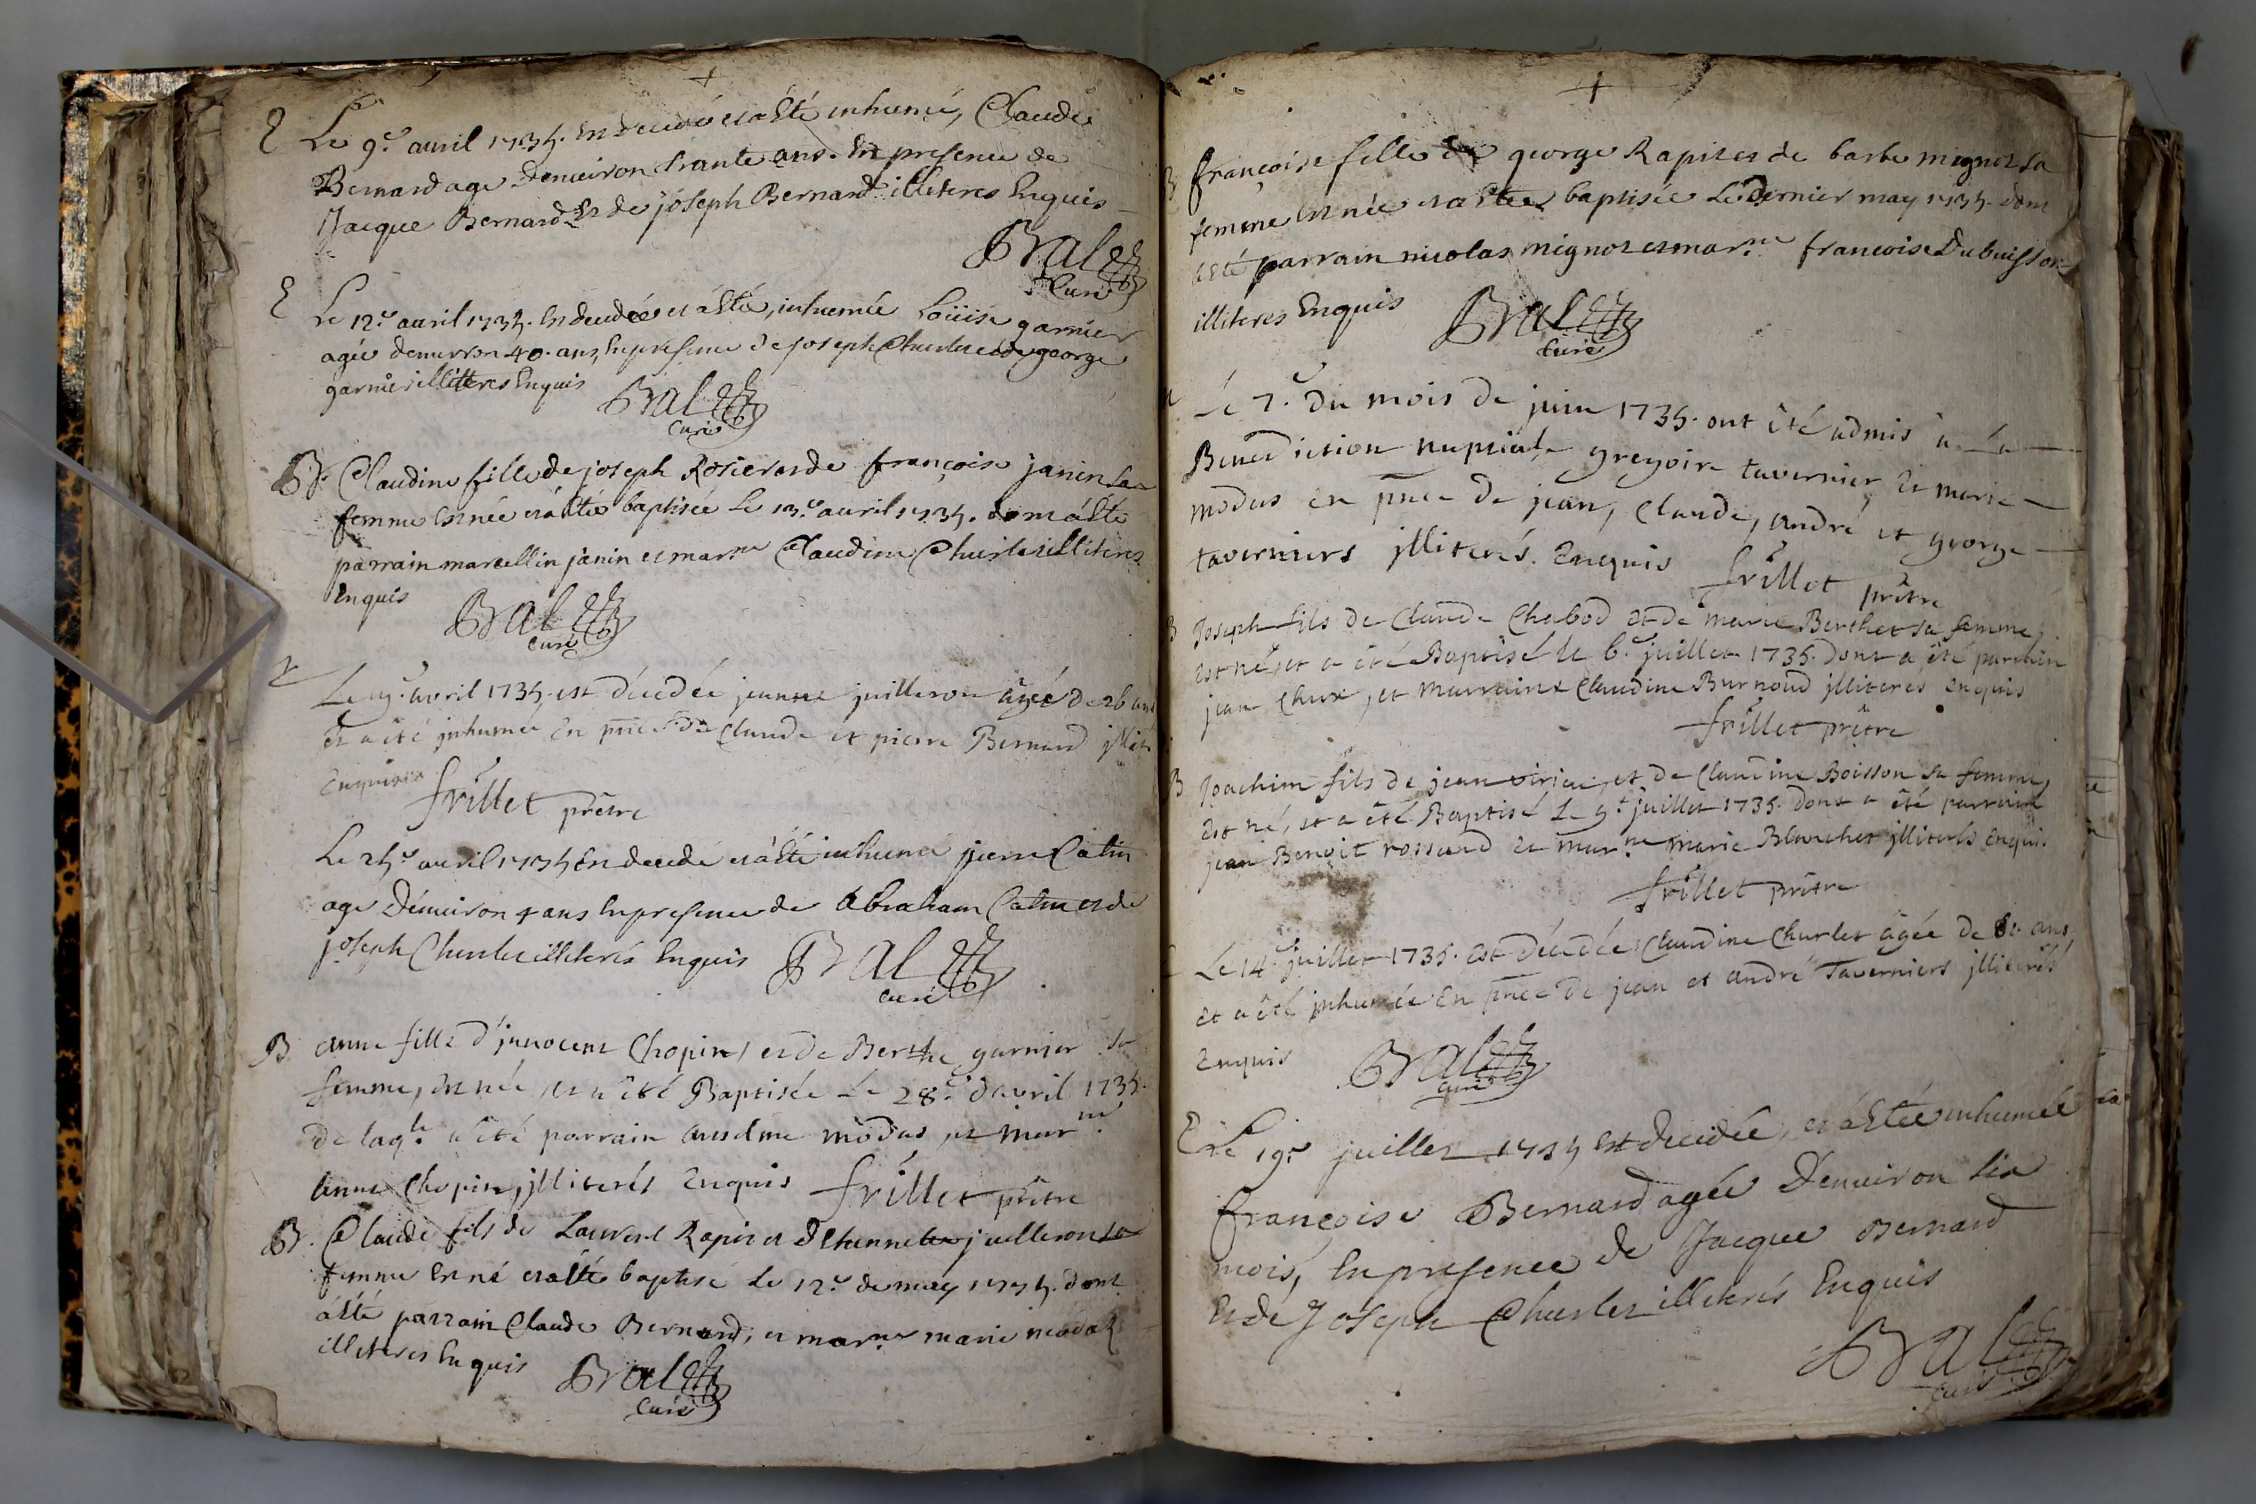 +
E Le 9.e auril 1735. Est decedé et a Esté inhumé, Claude
Bernard agé denuiron trante ans. En presence de
Jacque Bernard Et de joseph Bernard illiteres Enquis
Bral
Curé
E Le 12.e auril 1735. Est decedée et a Esté, inhumée Loüise garnier
agée denuiron 40. ans, En presence de joseph Churlet et de george
garnier illitteres Enquis Bral
Curé
B. Claudine fille de joseph Rosier et de françoise janin sa
femme Est née et a esté baptisée Le 13.e auril 1735. dont a Esté
parrain marcellin janin et mar.ne Claudine Churlet illiteres
Enquis Bral
Curé
avril 1735. est décédée jeanne juilleron âgée de 26 ans
et a été jnhumée En pnce de Claude et pierre Bernard jllit
Enquis
frillet prêtre
Le 25.e auril 1735 Est decedé et a Esté inhumé pierre Catin
agé Denuiron 4 ans En presence de Abraham Catin et de
joseph Churlet illiterés Enquis Bral
Curé
B. anne fille d'jnnocent Chopin, et de Berthe garnier sa
femme, est née, et a été Baptisée Le 28.e d'avril 1735.
De laq.le a été parrain anselme modas et mar.ne
anne Chopin, jlliterés Enquis frillet prêtre
B. Claude fils de Laurent Rapit et D'Etiennette juilleron sa
femme Est né et a Esté baptisé Le 12.e de may 1735. dont
a Esté parrain Claude Bernard, et mar.ne marie modas
illiteres Enquis Bral
Curé
+
B françoise fille de george Rapit et de barbe mignot sa
femme Est née et a Estée baptisée Le Dernier may 1735. dont
a Esté parrain nicolas mignot et mar.ne francoise Dubuisson
illiteres Enquis Bral
Curé
Le 7.e Du mois de juin 1735. ont été admis à La
Benediction nuptiale gregoire tavernier, et marie
modas en pnce de jean, Claude, andré et george
taverniers jlliterés. Enquis frillet prêtre
B Joseph fils de Claude Chabod et de marie Berthet sa femme,
est né, et a été Baptisé le 6.e juillet 1735. Dont a été parrain
jean Chux, et marraine Claudine Burnoud jlliteres Enquis
frillet prêtre
B Joachim fils de jean viriat, et de Claudine Boisson sa femme,
est né, et a été Baptisé Le 9.e juillet 1735. Dont a été parrain
jean Benoit rossand et mar.ne marie Blanchet jlliterés Enquis
frillet prêtre
Le 14.e juillet 1735. est décédée Claudine Churlet âgée de 80 ans,
et a été jnhumée En pnce de jean et andré Taverniers jlliterés
Enquis Bral
Curé
E Le 19.e juillet 1735 Est decedée, et a Estée inhumée
françoise Bernard agée Denuiron six
mois, En presence de Jacque Bernard
Et de Joseph Churlet illiterés Enquis
Bral
Curé